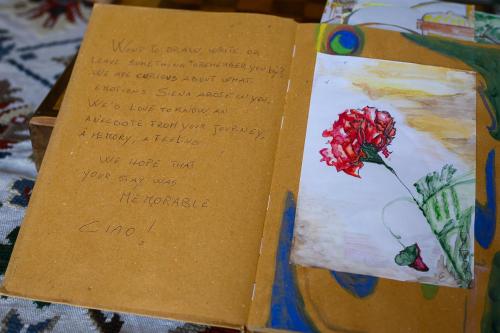 WANT TO DRAW, WRITE OR
LEAVE SOMETHING TO REMEMBER YOU BY?
WE ARE CURIOUS ABOUT WHAT
EMOTIONS SIENA AROSE IN YOU,
WE'D LOVE TO KNOW AN
ANECDOTE FROM YOUR JOURNEY,
A MEMORY, A FEELING
WE HOPE THAT
YOUR STAY WAS
MEMORABLE
CIAO!